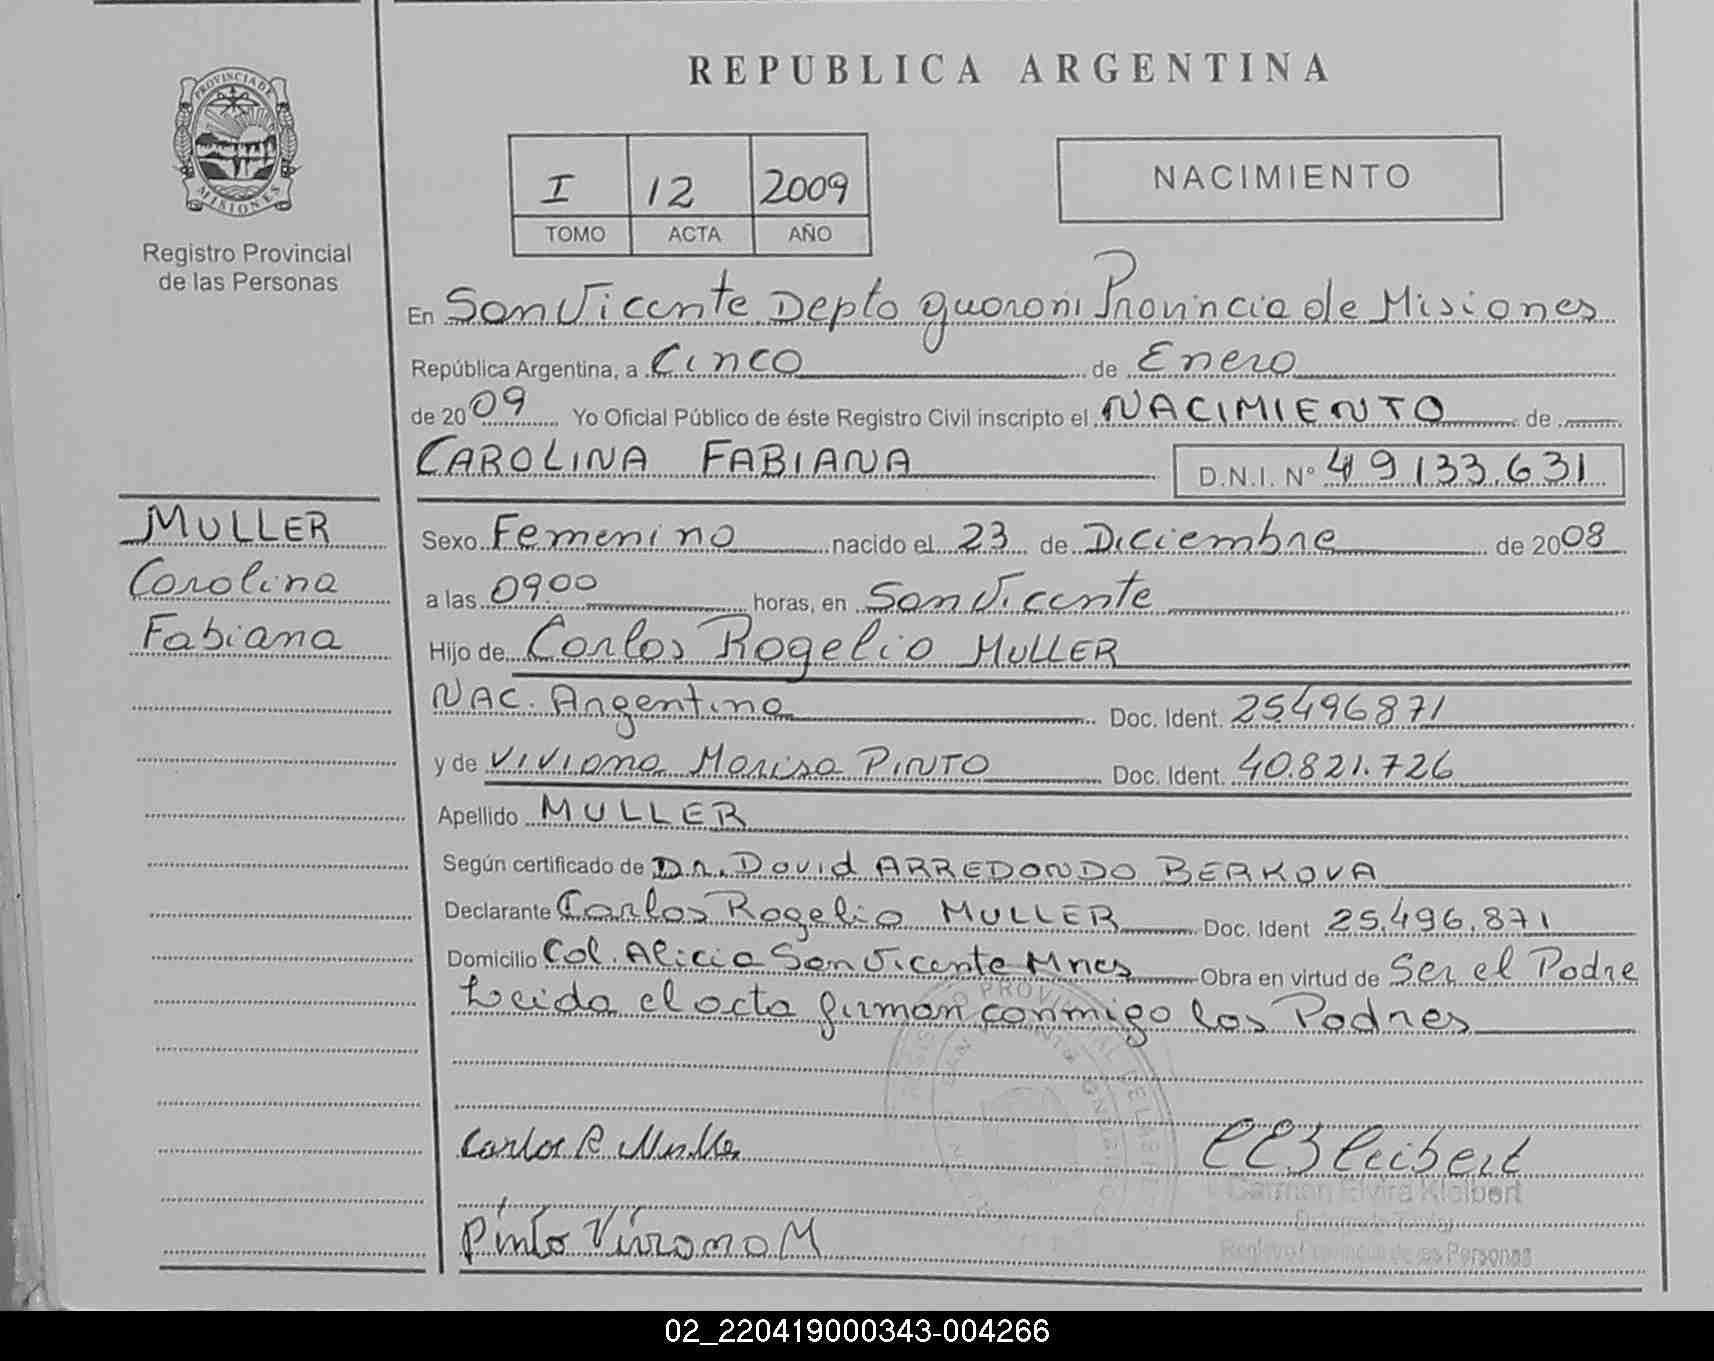 REPUBLICA ARGENTINA
PROVINCIA DE MISIONES
Registro Provincial
de las Personas
I 12 2009
TOMO ACTA AÑO
NACIMIENTO
En San Vicente Depto guarani Provincia de Misiones
República Argentina, a Cinco de Enero
de 2009 Yo Oficial Público de éste Registro Civil inscripto el NACIMIENTO de
CAROLINA FABIANA D.N.I. Nº 49133.631
MULLER
Carolina
Fabiana
Sexo Femenino nacido el 23 de Diciembre de 2008
a las 0900 horas, en San Vicente
Hijo de Carlos Rogelio MULLER
NAC. Argentina Doc. Ident. 25496871
y de Viviana Marisa PINTO Doc. Ident. 40.821.726
Apellido MULLER
Según certificado de Dr. David ARREDONDO BERKOVA
Declarante Carlos Rogelio MULLER Doc. Ident 25.496.871
Domicilio Col. Alicia San Vicente Mnes Obra en virtud de Ser el Padre
Leida el acta firman conmigo los Padres
Carlos R Muller
CEKleibert
Carmen Elvira Kleibert
Delegada Titular
Registro Provincial de las Personas
Pinto Viviana M
02_220419000343-004266